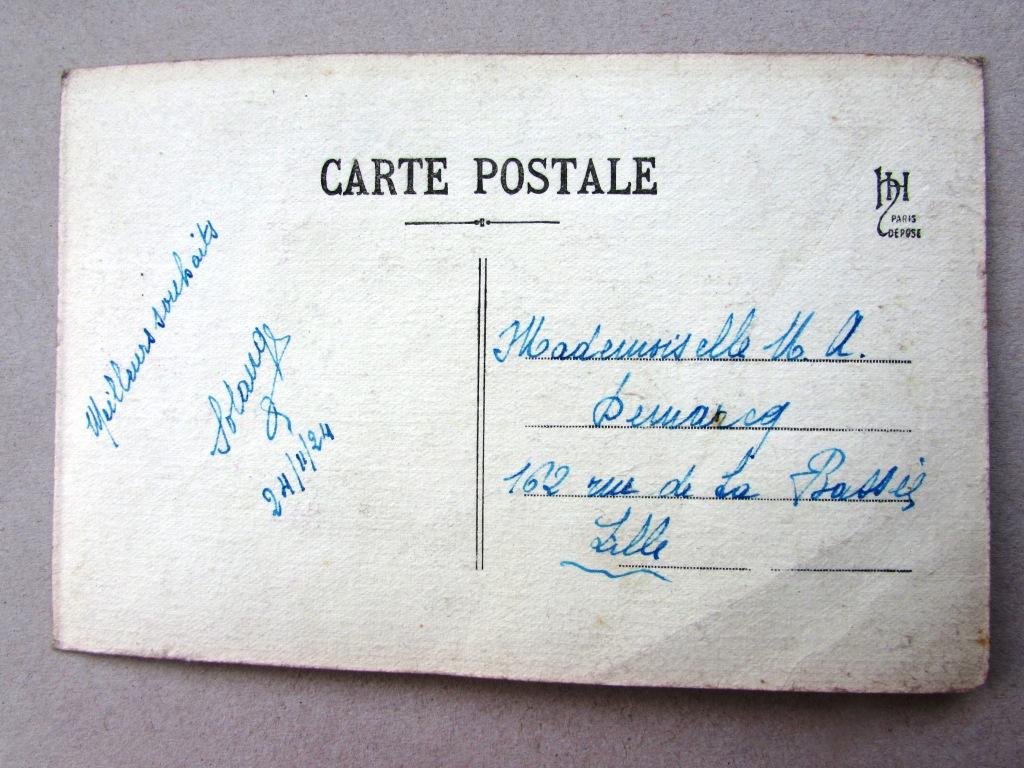 CARTE POSTALE
PARIS
DEPOSE
Meilleurs souhaits
Solange
24/11/24
Mademoiselle M. A.
Demarcq
162 rue de La Bassée
Lille